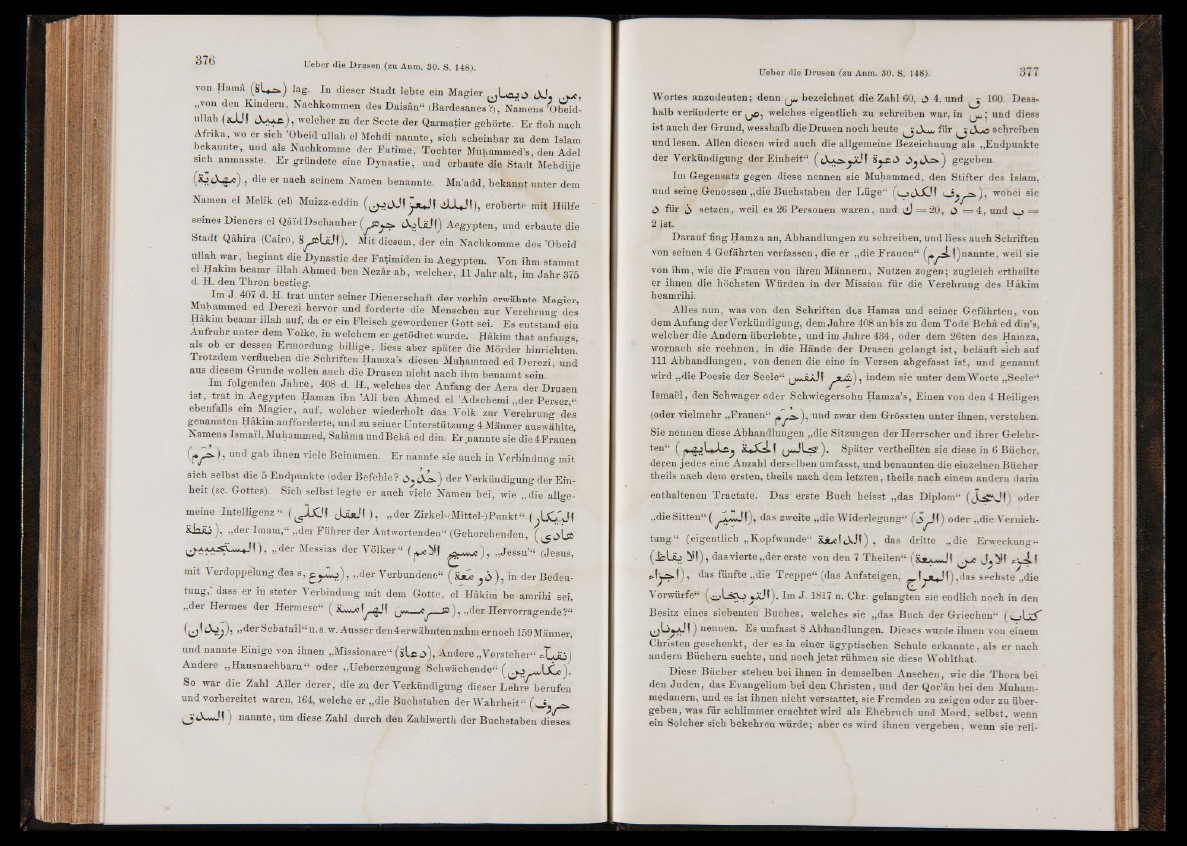 376
Ueber die Drusen (zu Anm. 30. S. 148).
von Ḥamâ (حماة) lag. In dieser Stadt lebte ein Magier من ولد ديصان,
„von den Kindern, Nachkommen des Daisân“ (Bardesanes?), Namens ’Obeid-
ullah (عبيد الله), welcher zu der Secte der Qarmaṭier gehörte. Er floh nach
Afrika, wo er sich ’Obeid ullah el Mehdi nannte, sich scheinbar zu dem Islam
bekannte, und als Nachkomme der Fatime, Tochter Muḥammed’s, den Adel
sich anmasste. Er gründete eine Dynastie, und erbaute die Stadt Mehdijje
(مهدية), die er nach seinem Namen benannte. Ma’add, bekannt unter dem
Namen el Melik (el) Muizz-eddin (الملك المعز الدين), eroberte mit Hülfe
seines Dieners el Qâïd Dschauher (القايد جوهر) Aegypten, und erbaute die
Stadt Qâhira (Cairo, القاهرة). Mit diesem, der ein Nachkomme des ’Obeid
ullah war, beginnt die Dynastie der Faṭimiden in Aegypten. Von ihm stammt
el Ḥakim beamr illah Aḥmed ben Nezâr ab, welcher, 11 Jahr alt, im Jahr 375
d. H. den Thron bestieg.
Im J. 407 d. H. trat unter seiner Dienerschaft der vorhin erwähnte Magier,
Muḥammed ed Derezi hervor und forderte die Menschen zur Verehrung des
Ḥâkim beamr illah auf, da er ein Fleisch gewordener Gott sei. Es entstand ein
Aufruhr unter dem Volke, in welchem er getödtet wurde. Ḥâkim that anfangs,
als ob er dessen Ermordung billige, liess aber später die Mörder hinrichten.
Trotzdem verfluchen die Schriften Ḥamza’s diesen Muḥammed ed Derezi, und
aus diesem Grunde wollen auch die Drusen nicht nach ihm benannt sein.
Im folgenden Jahre, 408 d. H., welches der Anfang der Aera der Drusen
ist, trat in Aegypten Ḥamza ibn ’Ali ben Aḥmed el ’Adschemi „der Perser,“
ebenfalls ein Magier, auf, welcher wiederholt das Volk zur Verehrung des
genannten Ḥâkim aufforderte, und zu seiner Unterstützung 4 Männer auswählte,
Namens Ismaïl, Muḥammed, Salâma und Behâ ed din. Er nannte sie die 4 Frauen
(حرم), und gab ihnen viele Beinamen. Er nannte sie auch in Verbindung mit
sich selbst die 5 Endpunkte (oder Befehle? حدود) der Verkündigung der Ein-
heit (sc. Gottes). Sich selbst legte er auch viele Namen bei, wie „die allge-
meine Intelligenz“ (العقل الكلّى), „der Zirkel-(Mittel-)Punkt“ (البيكار
نقطة), „der Imam,“ „der Führer der Antwortenden“ (Gehorchenden, هادى
المستجيبين), „der Messias der Völker“ (مسيح الامم), „Jessu’“ (Jesus,
mit Verdoppelung des s, يسّوع), „der Verbundene“ (ذو معة), in der Bedeu-
tung, dass er in steter Verbindung mit dem Gotte, el Ḥâkim be amrihi sei,
„der Hermes der Hermese“ (هرمس الهرامسة), „der Hervorragende?“
(زيدان), „der Sebatnil“ u. s. w. Ausser den 4 erwähnten nahm er noch 159 Männer,
und nannte Einige von ihnen „Missionare“ (دعاة), Andere „Vorsteher“ نقباء)
Andere „Hausnachbarn“ oder „Ueberzeugung Schwächende“ (مكاسرين).
So war die Zahl Aller derer, die zu der Verkündigung dieser Lehre berufen
und vorbereitet waren, 164, welche er „die Buchstaben der Wahrheit“ (حروف
السدق) nannte, um diese Zahl durch den Zahlwerth der Buchstaben dieses
Ueber die Drusen (zu Anm. 30. S. 148).
377
Wortes anzudeuten; denn س bezeichnet die Zahl 60, د 4, und ق 100. Dess-
halb veränderte er ص, welches eigentlich zu schreiben war, in س; und diess
ist auch der Grund, wesshalb die Drusen noch heute سدق für صدق schreiben
und lesen. Allen diesen wird auch die allgemeine Bezeichnung als „Endpunkte
der Verkündigung der Einheit“ (حدود دعوة التوحيد) gegeben.
Im Gegensatz gegen diese nennen sie Muḥammed, den Stifter des Islam,
und seine Genossen „die Buchstaben der Lüge“ (حروف الكدب), wobei sie
د für ذ setzen, weil es 26 Personen waren, und ك = 20, د = 4, und ب =
2 ist.
Darauf fing Ḥamza an, Abhandlungen zu schreiben, und liess auch Schriften
von seinen 4 Gefährten verfassen, die er „die Frauen“ (الحرم) nannte, weil sie
von ihm, wie die Frauen von ihren Männern, Nutzen zogen; zugleich ertheilte
er ihnen die höchsten Würden in der Mission für die Verehrung des Ḥâkim
beamrihi.
Alles nun, was von den Schriften des Hamza und seiner Gefährten, von
dem Anfang der Verkündigung, dem Jahre 408 an bis zu dem Tode Behâ ed din’s,
welcher die Andern überlebte, und im Jahre 434, oder dem 26ten des Ḥamza,
wornach sie rechnen, in die Hände der Drusen gelangt ist, beläuft sich auf
111 Abhandlungen, von denen die eine in Versen abgefasst ist, und genannt
wird „die Poesie der Seele“ شعر النفس), indem sie unter dem Worte „Seele“
Ismaël, den Schwager oder Schwiegersohn Ḥamza’s, Einen von den 4 Heiligen
(oder vielmehr „Frauen“ حرم), und zwar den Grössten unter ihnen, verstehen.
Sie nennen diese Abhandlungen „die Sitzungen der Herrscher und ihrer Gelehr-
ten“ (مجالس الحكمة وعلمايهم). Später vertheilten sie diese in 6 Bücher,
deren jedes eine Anzahl derselben umfasst, und benannten die einzelnen Bücher
theils nach dem ersten, theils nach dem letzten, theils nach einem andern darin
enthaltenen Tractate. Das erste Buch heisst „das Diplom“ (السجل) oder
„die Sitten“ (السير), das zweite „die Widerlegung“ (الردّ) oder „die Vernich-
tung“ (eigentlich „Kopfwunde“ الدامغة), das dritte „die Erweckung“
(الايقاظ), das vierte „der erste von den 7 Theilen“ (الاول من السبعة
اجزاء), das fünfte „die Treppe“ (das Aufsteigen, المعراج), das sechste „die
Vorwürfe“ (التوبيخات). Im J. 1817 n. Chr. gelangten sie endlich noch in den
Besitz eines siebenten Buches, welches sie „das Buch der Griechen“ (كتاب
اليونان) nennen. Es umfasst 8 Abhandlungen. Dieses wurde ihnen von einem
Christen geschenkt, der es in einer ägyptischen Schule erkannte, als er nach
andern Büchern suchte, und noch jetzt rühmen sie diese Wohlthat.
Diese Bücher stehen bei ihnen in demselben Ansehen, wie die Thora bei
den Juden, das Evangelium bei den Christen, und der Qor’ân bei den Muham-
medanern, und es ist ihnen nicht verstattet, sie Fremden zu zeigen oder zu über-
geben, was für schlimmer erachtet wird als Ehebruch und Mord, selbst, wenn
ein Solcher sich bekehren würde; aber es wird ihnen vergeben, wenn sie reli-